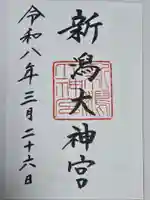 新潟大神宮
令和八年三月二十六日